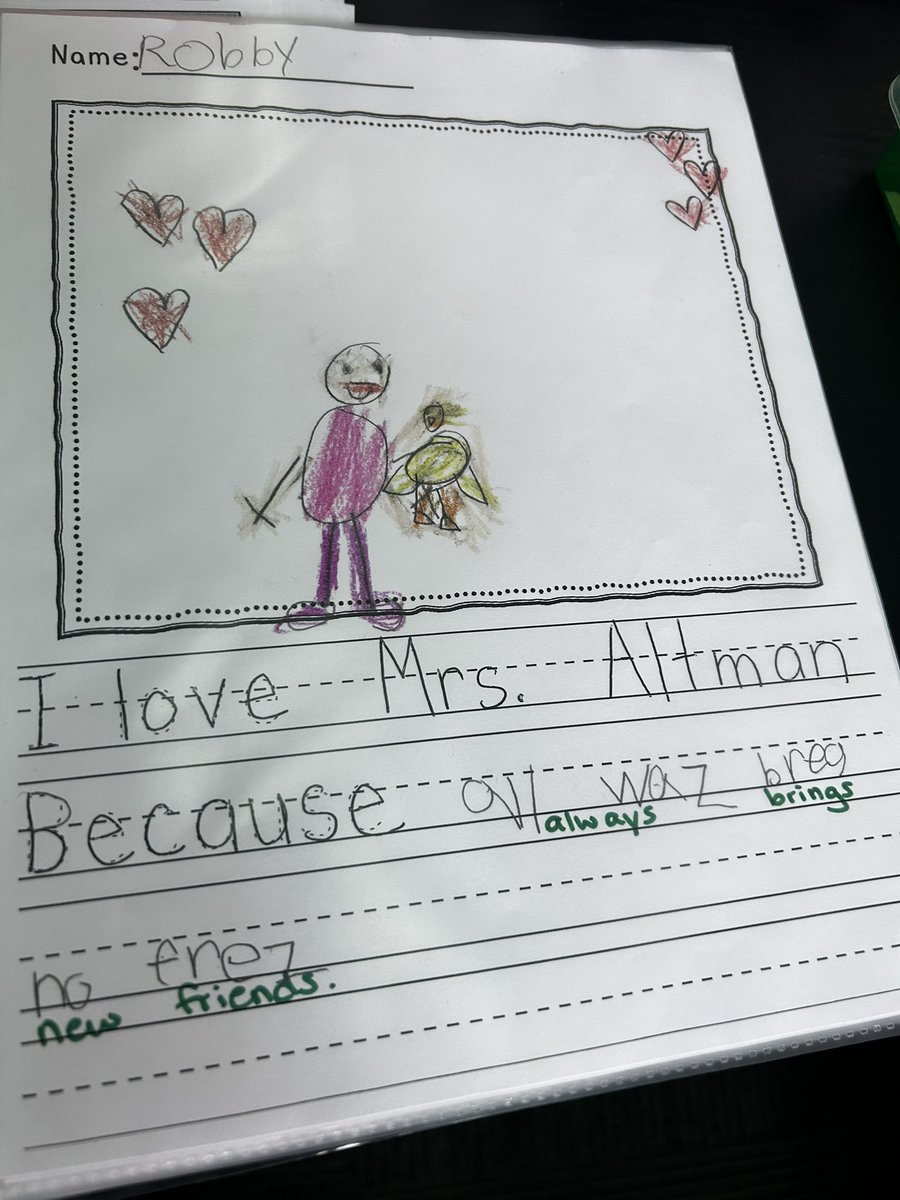 Name: Robby
I love Mrs. Altman
Because all waz breg
always brings
no frez
new friends.